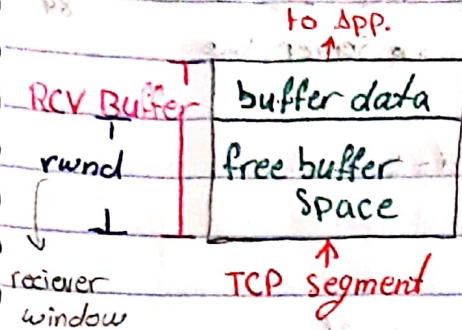 to App.
RCV Buffer
buffer data
rwnd
free buffer
space
reciever
window
TCP segment